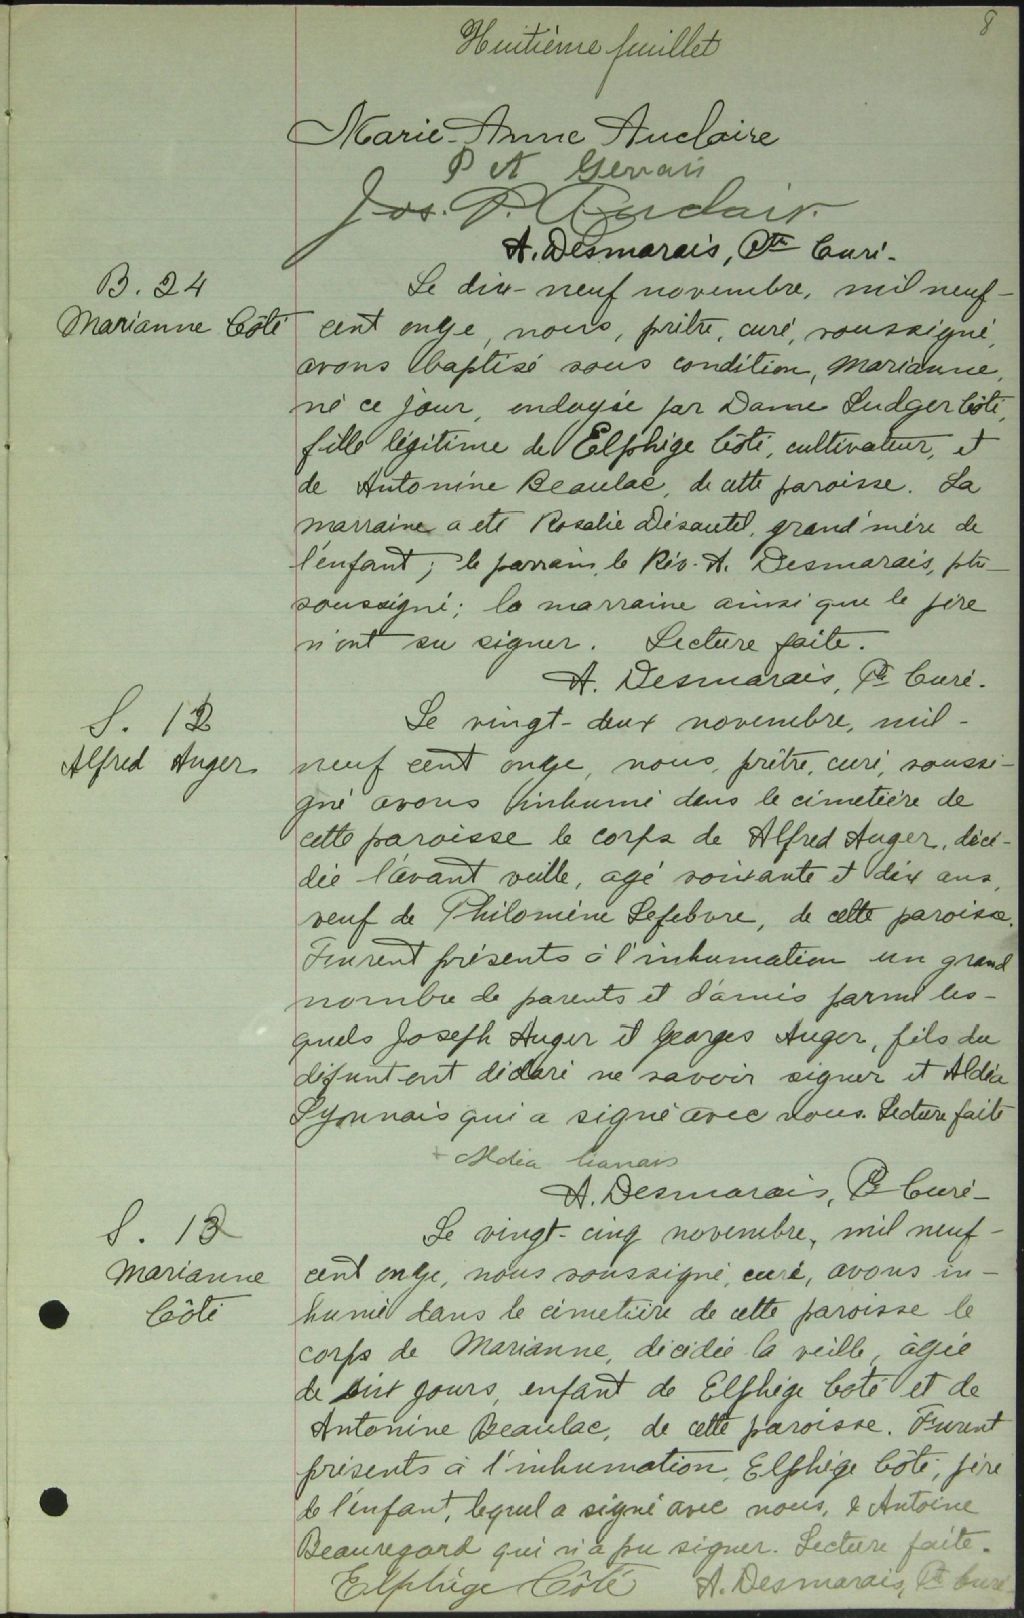 8
Huitième feuillet
Marie-Anne Auclaire
P A Gervais
Jos. P. Auclair.
A. Desmarais, Ptre Curé.
B. 24
Marianne Côté
Le dix-neuf novembre, mil neuf-
cent onze, nous, prêtre, curé, soussigné,
avons baptisé sous condition, Marianne,
né ce jour, ondoyée par Dame Ludger Côté,
fille légitime de Elphège Côté, cultivateur, et
de Antonine Beaulac, de cette paroisse. La
marraine a été Rosalie Désautel, grand'mère de
l'enfant; le parrain, le Rév. A. Desmarais, ptre
soussigné; la marraine ainsi que le père
n'ont su signer. Lecture faite.
A. Desmarais, Ptre Curé.
S. 12
Alfred Auger
Le vingt-deux novembre, mil-
neuf cent onze, nous, prêtre, curé, soussi-
gné avons inhumé dans le cimetière de
cette paroisse le corps de Alfred Auger, décé-
dée l'avant veille, agé soixante et dix ans,
veuf de Philomène Lefebvre, de cette paroisse.
Furent présents à l'inhumation un grand
nombre de parents et d'amis parmi les-
quels Joseph Auger et Georges Auger, fils du
défunt ont déclaré ne savoir signer et Aldéa
Lyonnais qui a signé avec nous. Lecture faite
+ Aldea lianais
A. Desmarais, Ptre Curé-
S. 13
Marianne
Côté
Le vingt-cinq novembre, mil neuf-
cent onze, nous soussigné, curé, avons in-
humé dans le cimetière de cette paroisse le
corps de Marianne, décédée la veille, âgée
de six jours, enfant de Elphège Coté et de
Antonine Beaulac, de cette paroisse. Furent
présents à l'inhumation, Elphège Côté, père
de l'enfant, lequel a signé avec nous, & Antoine
Beauregard qui n'a pu signer. Lecture faite.
Elphège Côté A. Desmarais, Ptre Curé